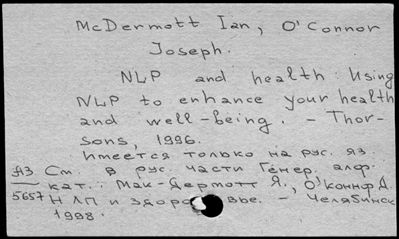 McDermott Ian, O'Connor
Joseph.
NLP and health: Using
NLP to enhance your health
and well-being. - Thor-
sons, 1996.
Имеется только на рус. яз.
См. в рус. части Генер. алф.
кат.: Мак-Дермотт Я., О'Коннор Д.
НЛП и здоровье. - Челябинск
1998.
ЯЗ
5657